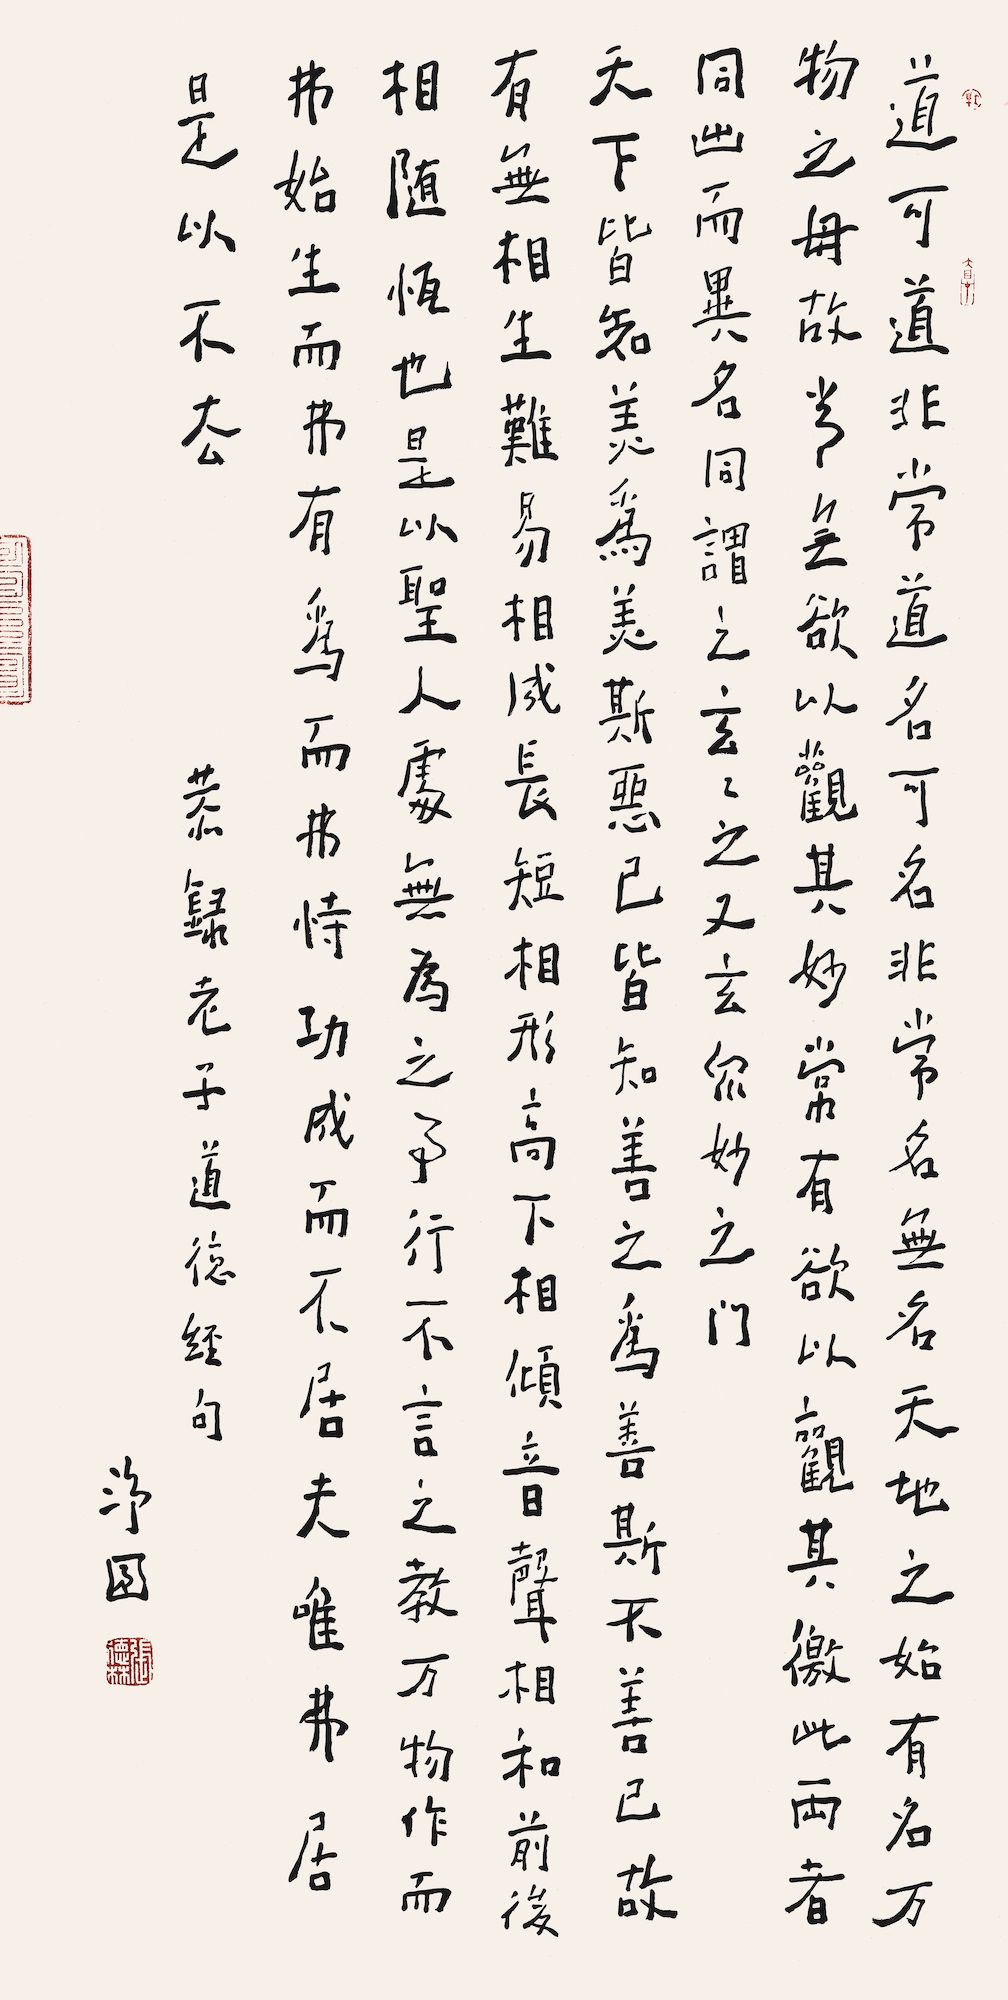 道可道非常道名可名非常名無名天地之始有名万
物之母故常無欲以觀其妙常有欲以觀其徼此兩者
同出而異名同謂之玄々之又玄眾妙之门
天下皆知美爲美斯惡已皆知善之爲善斯不善已故
有無相生難易相成長短相形高下相傾音聲相和前後
相随恆也是以聖人處無為之事行不言之教万物作而
弗始生而弗有爲而弗恃功成而不居夫唯弗居
是以不去
恭録老子道德经句
淨圆
張德林